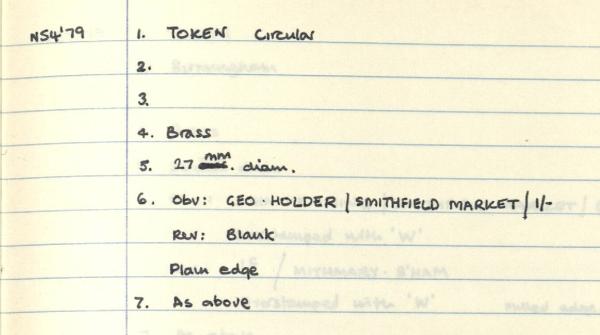 N54'79 1. TOKEN Circular
2. Birmingham
3.
4. Brass
5. 27 mm. diam.
6. Obv: GEO · HOLDER / SMITHFIELD MARKET / 1/-
Rev: Blank
Plain edge
7. As above